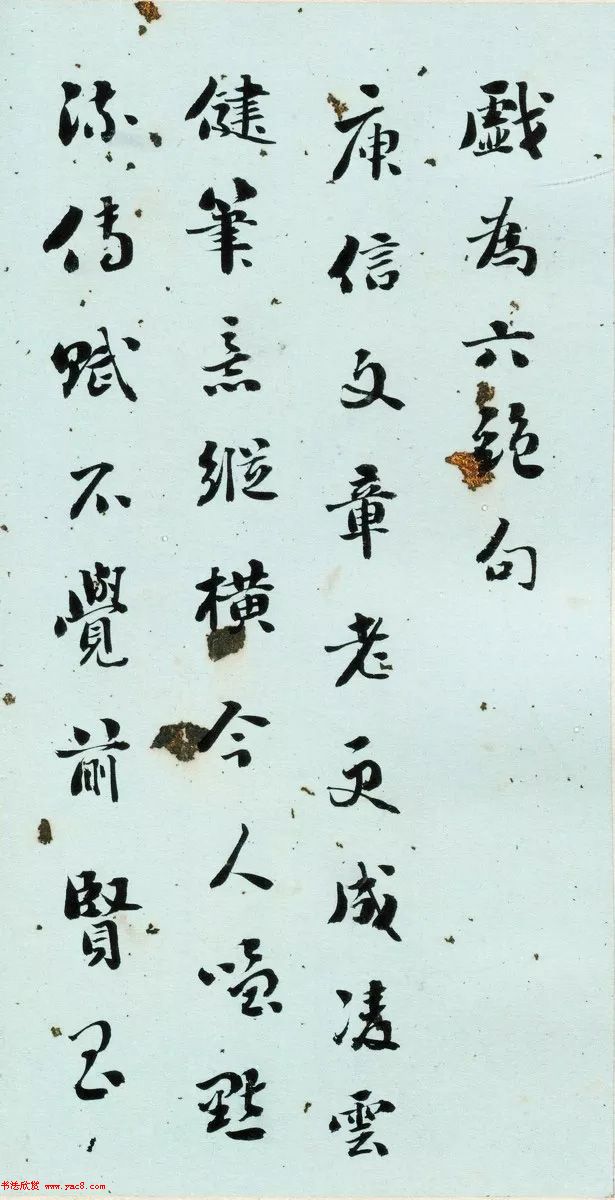 戲為六絕句
庾信文章老更成凌雲
健筆意縱橫今人嗤點
流傳賦不覺前賢畏
书法欣赏 www.yac8.com